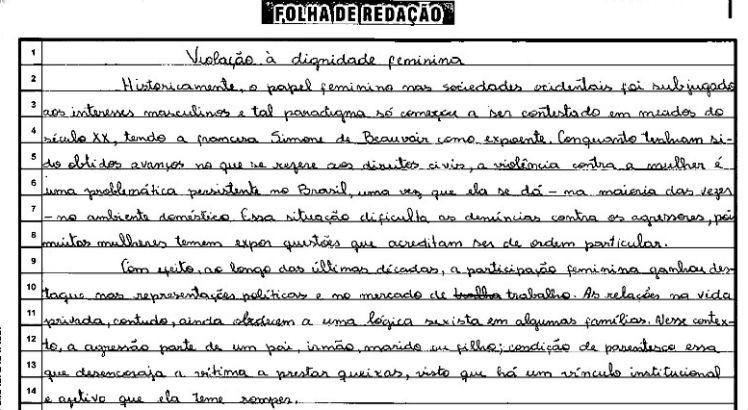 FOLHA DE REDAÇÃO
1 Violação à dignidade feminina
2 Historicamente, o papel feminino nas sociedades ocidentais foi subjugado
3 aos interesses masculinos e tal paradigma só começou a ser contestado em meados do
4 século XX, tendo a francesa Simone de Beauvoir como expoente. Conquanto tenham si-
5 do obtidos avanços no que se refere aos direitos civis, a violência contra a mulher é
6 uma problemática persistente no Brasil, uma vez que ela se dá - na maioria das vezes
7 - no ambiente doméstico. Essa situação dificulta as denúncias contra os agressores, pois
8 muitas mulheres temem expor questões que acreditam ser de ordem particular.
9 Com efeito, ao longo das últimas décadas, a participação feminina ganhou des-
10 taque nas representações políticas e no mercado de trabalho. As relações na vida
11 privada, contudo, ainda obedecem a uma lógica sexista em algumas famílias. Nesse contex-
12 to, a agressão parte de um pai, irmão, marido ou filho; condição de parentesco essa
13 que desencoraja a vítima a prestar queixas, visto que há um vínculo institucional
14 e afetivo que ela teme romper.